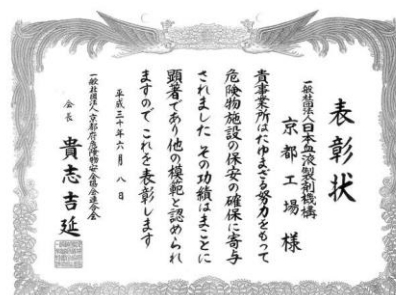 表彰状
一般社団法人日本血液製剤機構
京都工場 様
貴事業所はたゆまざる努力をもって
危険物施設の保安の確保に寄与
されました その功績はまことに
顕著であり他の模範と認められ
ますので これを表彰します
平成三十年六月 八日
一般社団法人京都府危険物安全協会連合会
会長 貴志吉延